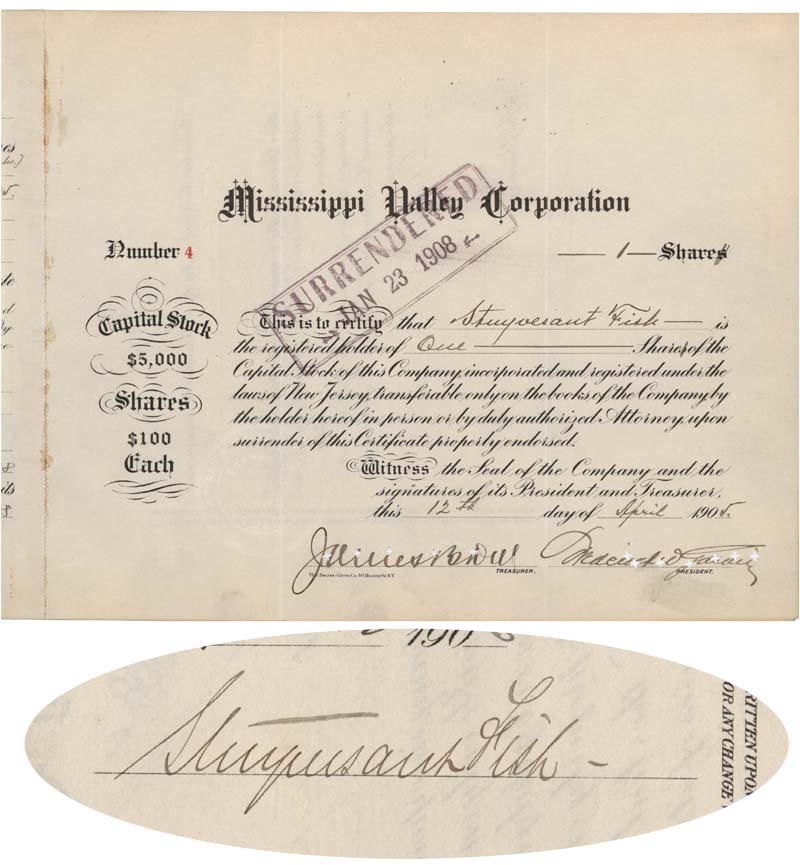 Mississippi Valley Corporation
Number 4
1 Shares
SURRENDERED
JAN 23 1908
Capital Stock
$5,000
Shares
$100
Each
This is to certify that Stuyvesant Fish is
the registered holder of One Shares of the
Capital Stock of this Company, incorporated and registered under the
laws of New Jersey, transferable only on the books of the Company by
the holder hereof in person or by duly authorized Attorney, upon
surrender of this Certificate properly endorsed.
Witness the Seal of the Company and the
signatures of its President and Treasurer,
this 12th day of April 1905.
TREASURER.
PRESIDENT.
190
Stuyvesant Fish -
RITTEN UPON
OR ANY CHANGE